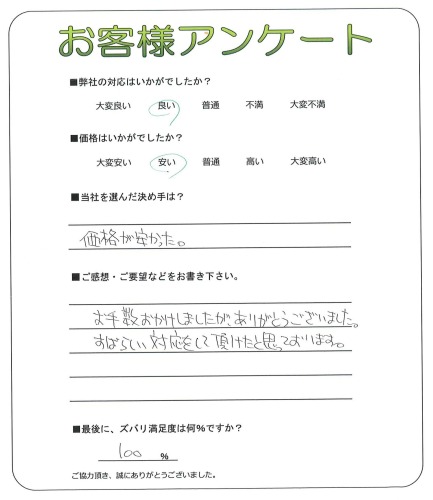 お客様アンケート
■弊社の対応はいかがでしたか？
大変良い 良い 普通 不満 大変不満
■価格はいかがでしたか？
大変安い 安い 普通 高い 大変高い
■当社を選んだ決め手は？
価格が安かった。
■ご感想・ご要望などをお書き下さい。
お手数おかけしましたが、ありがとうございました。
すばらしい対応をして頂けたと思っております。
■最後に、ズバリ満足度は何％ですか？
100 %
ご協力頂き、誠にありがとうございました。